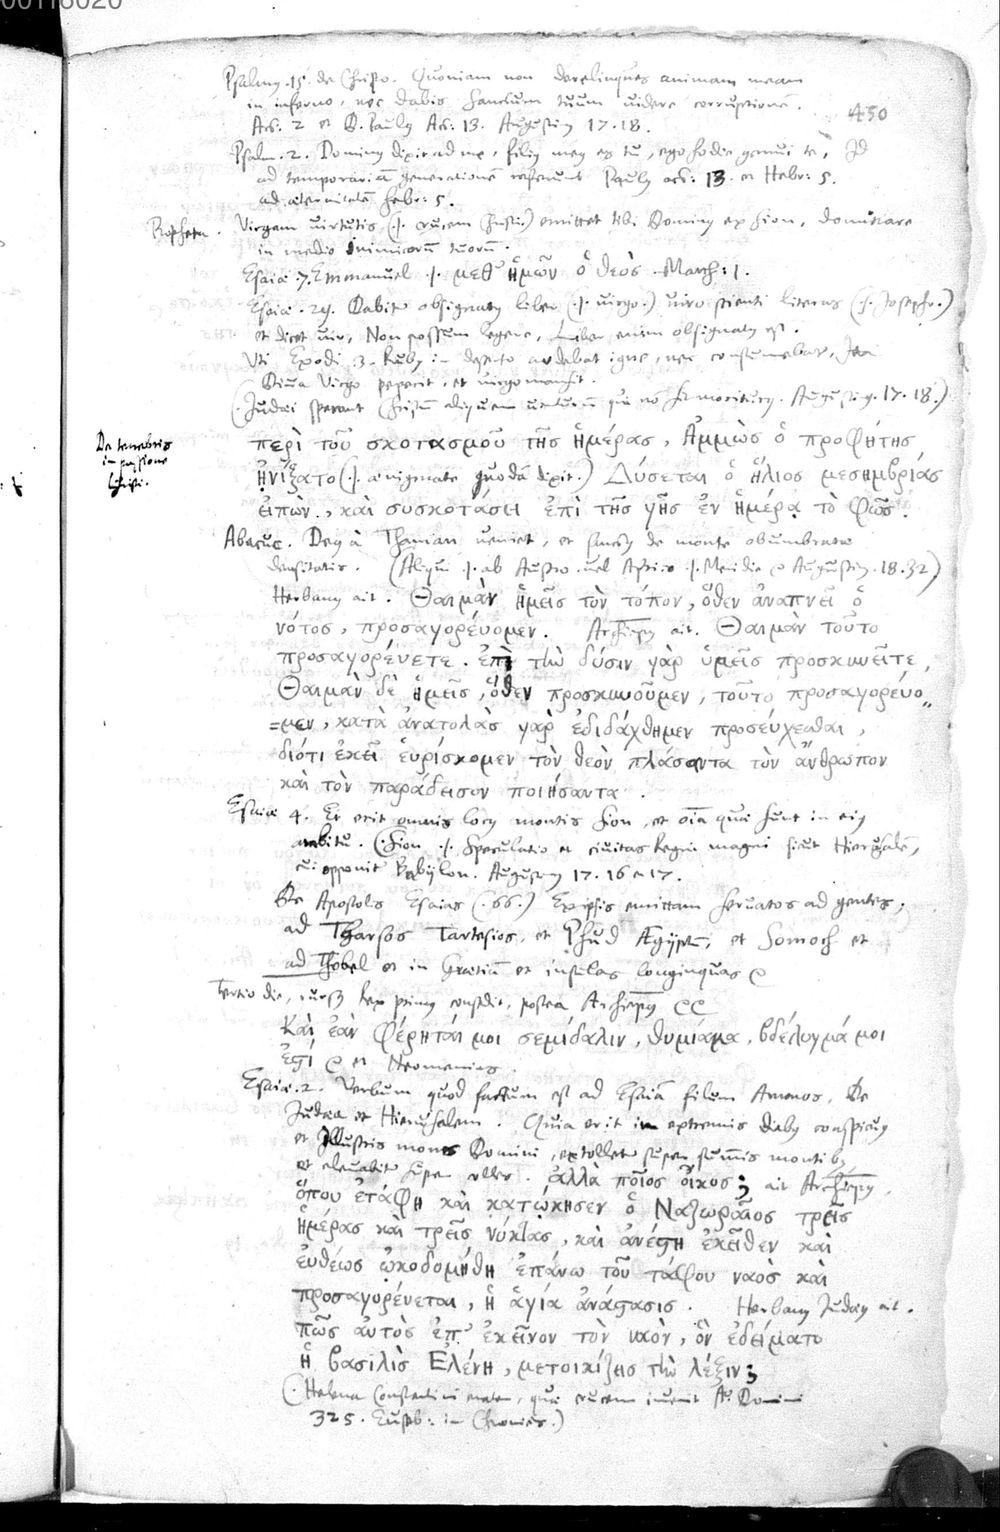 00118020
450
Psalmus .15. de Christo. Quoniam non derelinques animam meam
in inferno, nec dabis Sanctum tuum videre corruptionem.
Act: 2 et D. Paulus Act: 13. Augustinus 17.18.
Psalm. 2. Dominus dixit ad me, filius meus es tu, ego hodie genui te, Id
ad temporariam generationem referunt Paulus act: 13. et Hebr: 5.
ad aeternitatem hebr: 5.
Virgam virtutis (.s. crucem Christi.) emittet tibi Dominus ex Sion, dominare
in medio inimicorum tuorum.
Esaiae .7. Emmanuel .s. μεθ' ἡμῶν ὁ θεὸς. Matth: 1.
Esaiae .29. Dabitur obsignatus liber (.s. virgo.) viro scienti literas (.s. Josepho.)
et dicet vir, Non possum legere, Liber enim obsignatus est.
Uti Exodi .3. Rubus in deserto ardebat igne, nec consumebatur, Ita
Diva Virgo peperit, et virgo mansit.
(.Judaei sperant Christum aliquem venturum qui non sit moriturus. Augustinus. 17.18.)
De tenebris
in passione
Christi.
περὶ τοῦ σκοτασμοῦ τῆς ἡμέρας, Ἀμμὼς ὁ προφήτης
ᾐνίξατο (.s. aenigmate quodam dixit.) Δύσεται ὁ ἥλιος μεσημβρίας
εἰπὼν., καὶ συσκοτάσει ἐπὶ τῆς γῆς ἐν ἡμέρᾳ τὸ φῶς.
Abacuc. Deus à Thaman veniet, et sanctus de monte obumbrato
densitatis. (Aliqui .s. ab Austro vel Africo .s. Meridie Augustin. 18.32)
Herbanus ait. Θαιμὰν ἡμεῖς τὸν τόπον, ὅθεν ἀναπνεῖ ὁ
νότος, προσαγορεύομεν. Archiepus ait. Θαιμὰν τοῦτο
προσαγορεύετε. ἐπὶ τὴν δύσιν γὰρ ὑμεῖς προσκυνεῖτε,
Θαιμὰν δὲ ἡμεῖς, ὅθεν προσκυνοῦμεν, τοῦτο προσαγορεύο„
=μεν, κατὰ ἀνατολὰς γὰρ ἐδιδάχθημεν προσεύχεσθαι,
διότι ἐκεῖ εὑρίσκομεν τὸν θεὸν πλάσαντα τὸν ἄνθρωπον
καὶ τὸν παράδεισον ποιήσαντα.
Esaiae 4. Et erit omnis locus montis Sion, et omnia quae sunt in eius
ambitu. (.Sion .s. speculatio et civitas Regni magni sicut Hierusalem,
cui opponit Babylon. Augustinus 17.16 et 17.
De Apostolis Esaias (.66.) Ex ipsis emittam servatos ad gentes,
ad Tharsos Tartesios, et Phud Aegyptum, et Somoch et
ad Thobel et in Graeciam et insulas longinquas
Tertio die, rursus Rex primus consedit, postea Archiepus
Καὶ ἐὰν φέρητέ μοι σεμίδαλιν, θυμίαμα, βδέλυγμά μοι
ἐστί et Neomenias.
Esaiae .2. Verbum quod factum est ad Esaiam filium Amos, De
Judaea et Hierusalem. Quia erit in extremis diebus conspicuus
et Illustris mons Domini, extolletur super summis montibus,
et elevabitur super colles. ἀλλὰ ποῖος οἶκος; ait Archiepus,
ὅπου ἐτάφη καὶ κατῴκησεν ὁ Ναζωραῖος τρεῖς
ἡμέρας καὶ τρεῖς νύκτας, καὶ ἀνέστη ἐκεῖθεν καὶ
εὐθέως ᾠκοδομήθη ἐπάνω τοῦ τάφου ναὸς καὶ
προσαγορεύεται, ἡ ἁγία ἀνάστασις. Herbanus Judaeus ait.
πῶς αὐτὸς ἐπ' ἐκεῖνον τὸν ναὸν, ὃν ἐδείματο
ἡ βασιλὶς Ἑλένη, μετοικίζεις τὴν λέξιν;
(.Helena Constantini mater, quae crucem invenit Ao. Domini
325. Euseb: in Chronicis.)